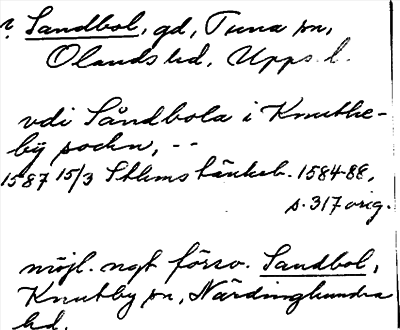 ? Sandbol, gd, Tuna sn,
Olands hd, Upps. l.
vdi Såndbola i Knuthe-
bÿ sockn, --
1587 15/3 Sthms tänkeb. 1584-88,
s. 317 orig.
möjl. ngt försv. Sandbol,
Knutby sn, Närdinghundra
hd.